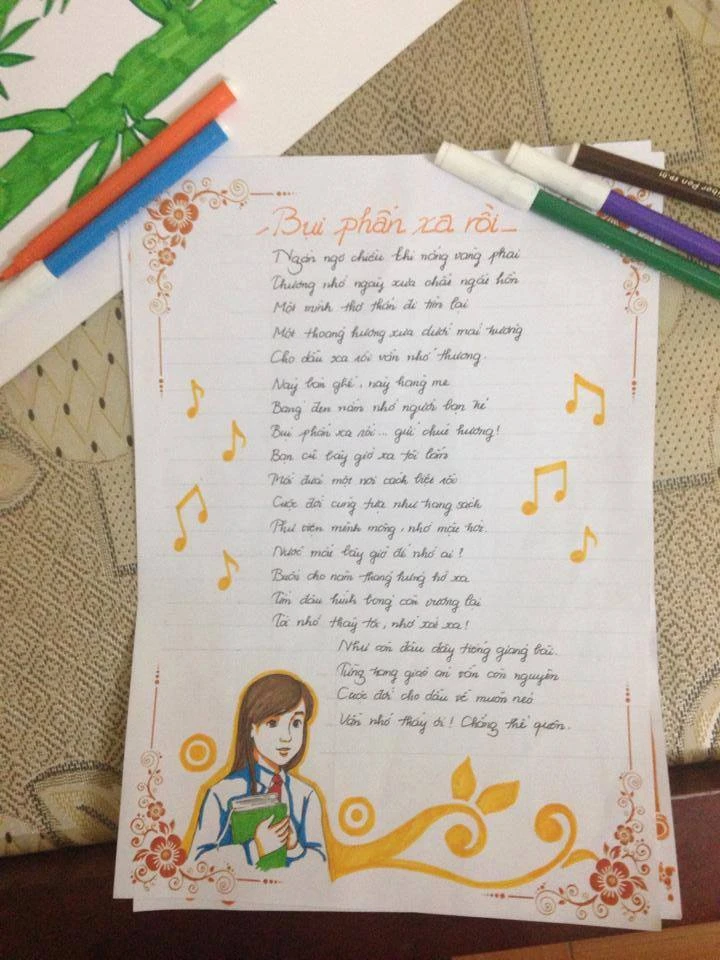 Bụi phấn xa rồi
Ngẩn ngơ chiều khi nắng vàng phai
Thương nhớ ngày xưa chất ngất hồn
Một mình thơ thẩn đi tìm lại
Một thoáng hương xưa dưới mái trường
Cho dẫu xa rồi vẫn nhớ thương.
Này bàn ghế, này hàng me
Bảng đen nằm nhớ người bạn
Bụi phấn xa rồi... gửi chút hương!
Bạn cũ bây giờ xa tôi lắm
Mỗi đứa một nơi cách biệt rồi
Cuộc đời cũng tựa như trang sách
Thư viện mênh mông, nhớ mặt
Nước mắt bây giờ để nhớ ai?
Buổi cho năm tháng hững hờ xa
Tìm đâu hình bóng còn vương lại
Tôi nhớ thầy tôi, nhớ xót xa!
Như còn đâu đây tiếng giảng bài
Từng trang giáo án vẫn còn nguyên
Cuộc đời cho dẫu về muôn nẻo
Vẫn nhớ thầy ơi! Chẳng thể quên.